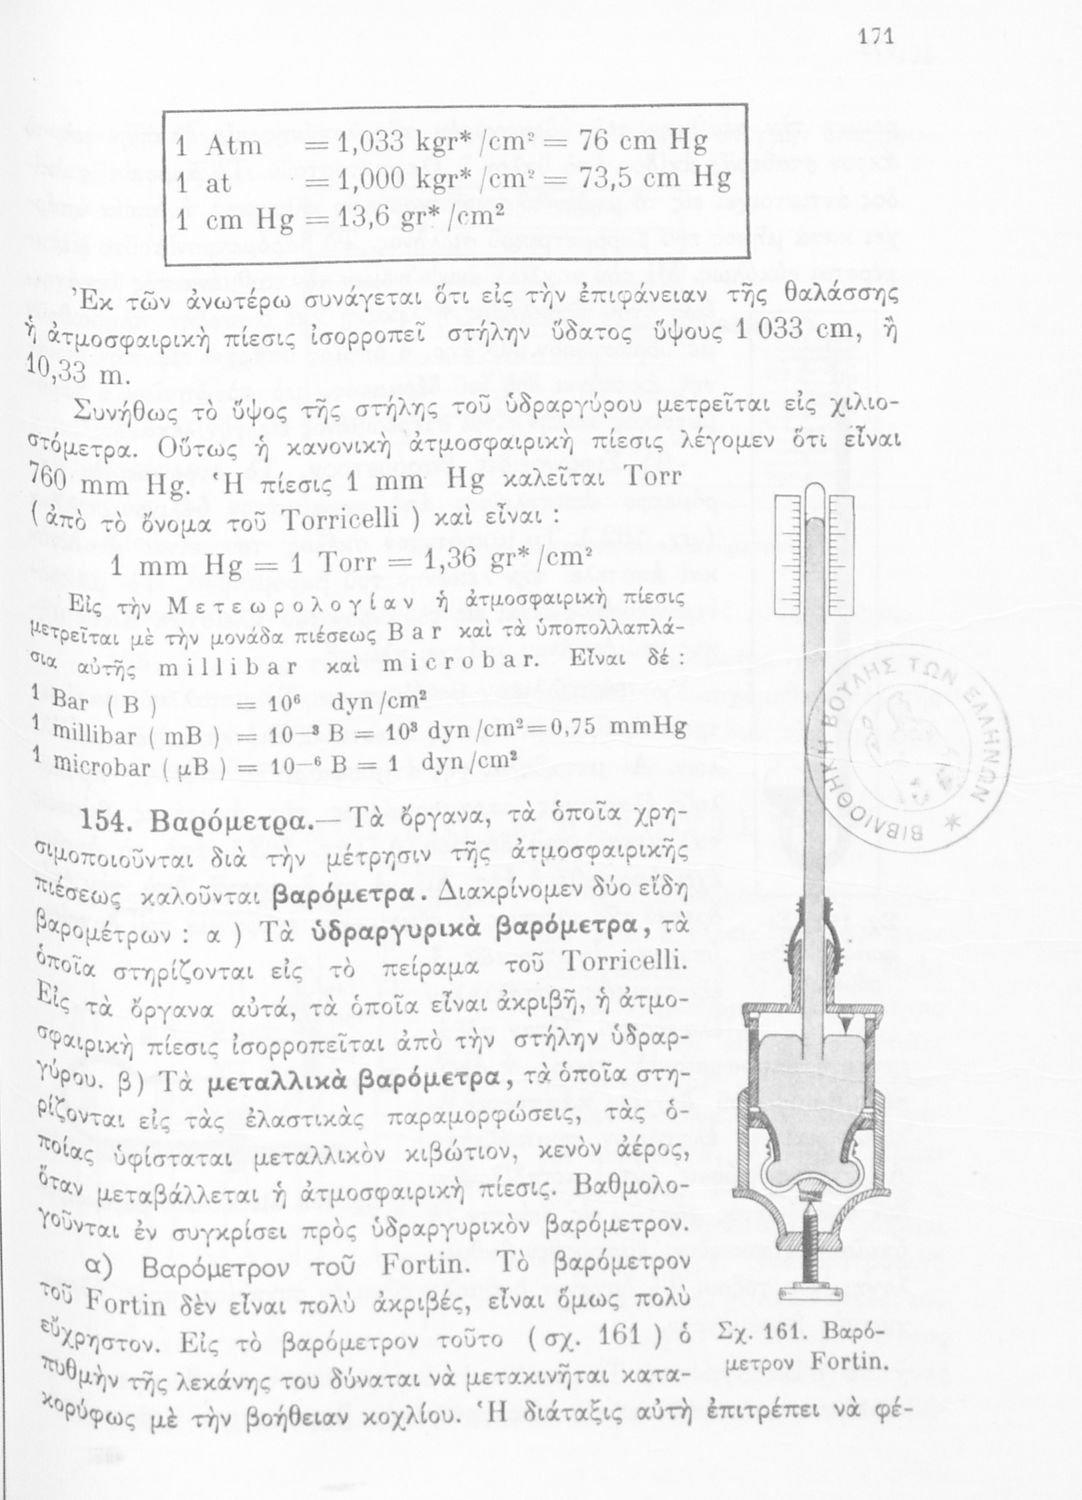 171
1 Atm = 1,033 kgr* /cm² = 76 cm Hg
1 at = 1,000 kgr* /cm² = 73,5 cm Hg
1 cm Hg = 13,6 gr* /cm²
Ἐκ τῶν ἀνωτέρω συνάγεται ὅτι εἰς τὴν ἐπιφάνειαν τῆς θαλάσσης
ἡ ἀτμοσφαιρικὴ πίεσις ἰσορροπεῖ στήλην ὕδατος ὕψους 1 033 cm, ἢ
10,33 m.
Συνήθως τὸ ὕψος τῆς στήλης τοῦ ὑδραργύρου μετρεῖται εἰς χιλιο-
στόμετρα. Οὕτως ἡ κανονικὴ ἀτμοσφαιρικὴ πίεσις λέγομεν ὅτι εἶναι
760 mm Hg. Ἡ πίεσις 1 mm Hg καλεῖται Torr
(ἀπὸ τὸ ὄνομα τοῦ Torricelli ) καὶ εἶναι :
1 mm Hg = 1 Torr = 1,36 gr* /cm²
Εἰς τὴν Μετεωρολογίαν ἡ ἀτμοσφαιρικὴ πίεσις
μετρεῖται μὲ τὴν μονάδα πιέσεως Bar καὶ τὰ ὑποπολλαπλά-
σια αὐτῆς millibar καὶ microbar. Εἶναι δέ :
1 Bar ( B ) = 10⁶ dyn /cm²
1 millibar ( mB ) = 10—³ B = 10³ dyn /cm²=0,75 mmHg
1 microbar ( μB ) = 10—⁶ B = 1 dyn /cm²
154. Βαρόμετρα.— Τὰ ὄργανα, τὰ ὁποῖα χρη-
σιμοποιοῦνται διὰ τὴν μέτρησιν τῆς ἀτμοσφαιρικῆς
πιέσεως καλοῦνται βαρόμετρα. Διακρίνομεν δύο εἴδη
βαρομέτρων : α ) Τὰ ὑδραργυρικὰ βαρόμετρα, τὰ
ὁποῖα στηρίζονται εἰς τὸ πείραμα τοῦ Torricelli.
Εἰς τὰ ὄργανα αὐτά, τὰ ὁποῖα εἶναι ἀκριβῆ, ἡ ἀτμο-
σφαιρικὴ πίεσις ἰσορροπεῖται ἀπὸ τὴν στήλην ὑδραρ-
γύρου. β) Τὰ μεταλλικὰ βαρόμετρα, τὰ ὁποῖα στη-
ρίζονται εἰς τὰς ἐλαστικὰς παραμορφώσεις, τὰς ὁ-
ποίας ὑφίσταται μεταλλικὸν κιβώτιον, κενὸν ἀέρος,
ὅταν μεταβάλλεται ἡ ἀτμοσφαιρικὴ πίεσις. Βαθμολο-
γοῦνται ἐν συγκρίσει πρὸς ὑδραργυρικὸν βαρόμετρον.
α) Βαρόμετρον τοῦ Fortin. Τὸ βαρόμετρον
τοῦ Fortin δὲν εἶναι πολὺ ἀκριβές, εἶναι ὅμως πολὺ
εὔχρηστον. Εἰς τὸ βαρόμετρον τοῦτο (σχ. 161 ) ὁ
πυθμὴν τῆς λεκάνης του δύναται νὰ μετακινῆται κατα-
κορύφως μὲ τὴν βοήθειαν κοχλίου. Ἡ διάταξις αὐτὴ ἐπιτρέπει νὰ φέ-
Σχ. 161. Βαρό-
μετρον Fortin.
ΒΙΒΛΙΟΘΗΚΗ ΒΟΥΛΗΣ ΤΩΝ ΕΛΛΗΝΩΝ *